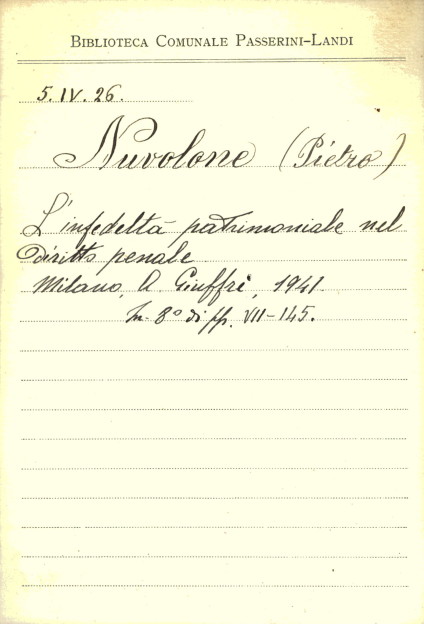 BIBLIOTECA COMUNALE PASSERINI-LANDI
5. IV. 26.
Nuvolone (Pietro)
L'infedeltà patrimoniale nel
diritto penale
Milano, A Giuffrè, 1941.
In 8° di pp. VII-145.